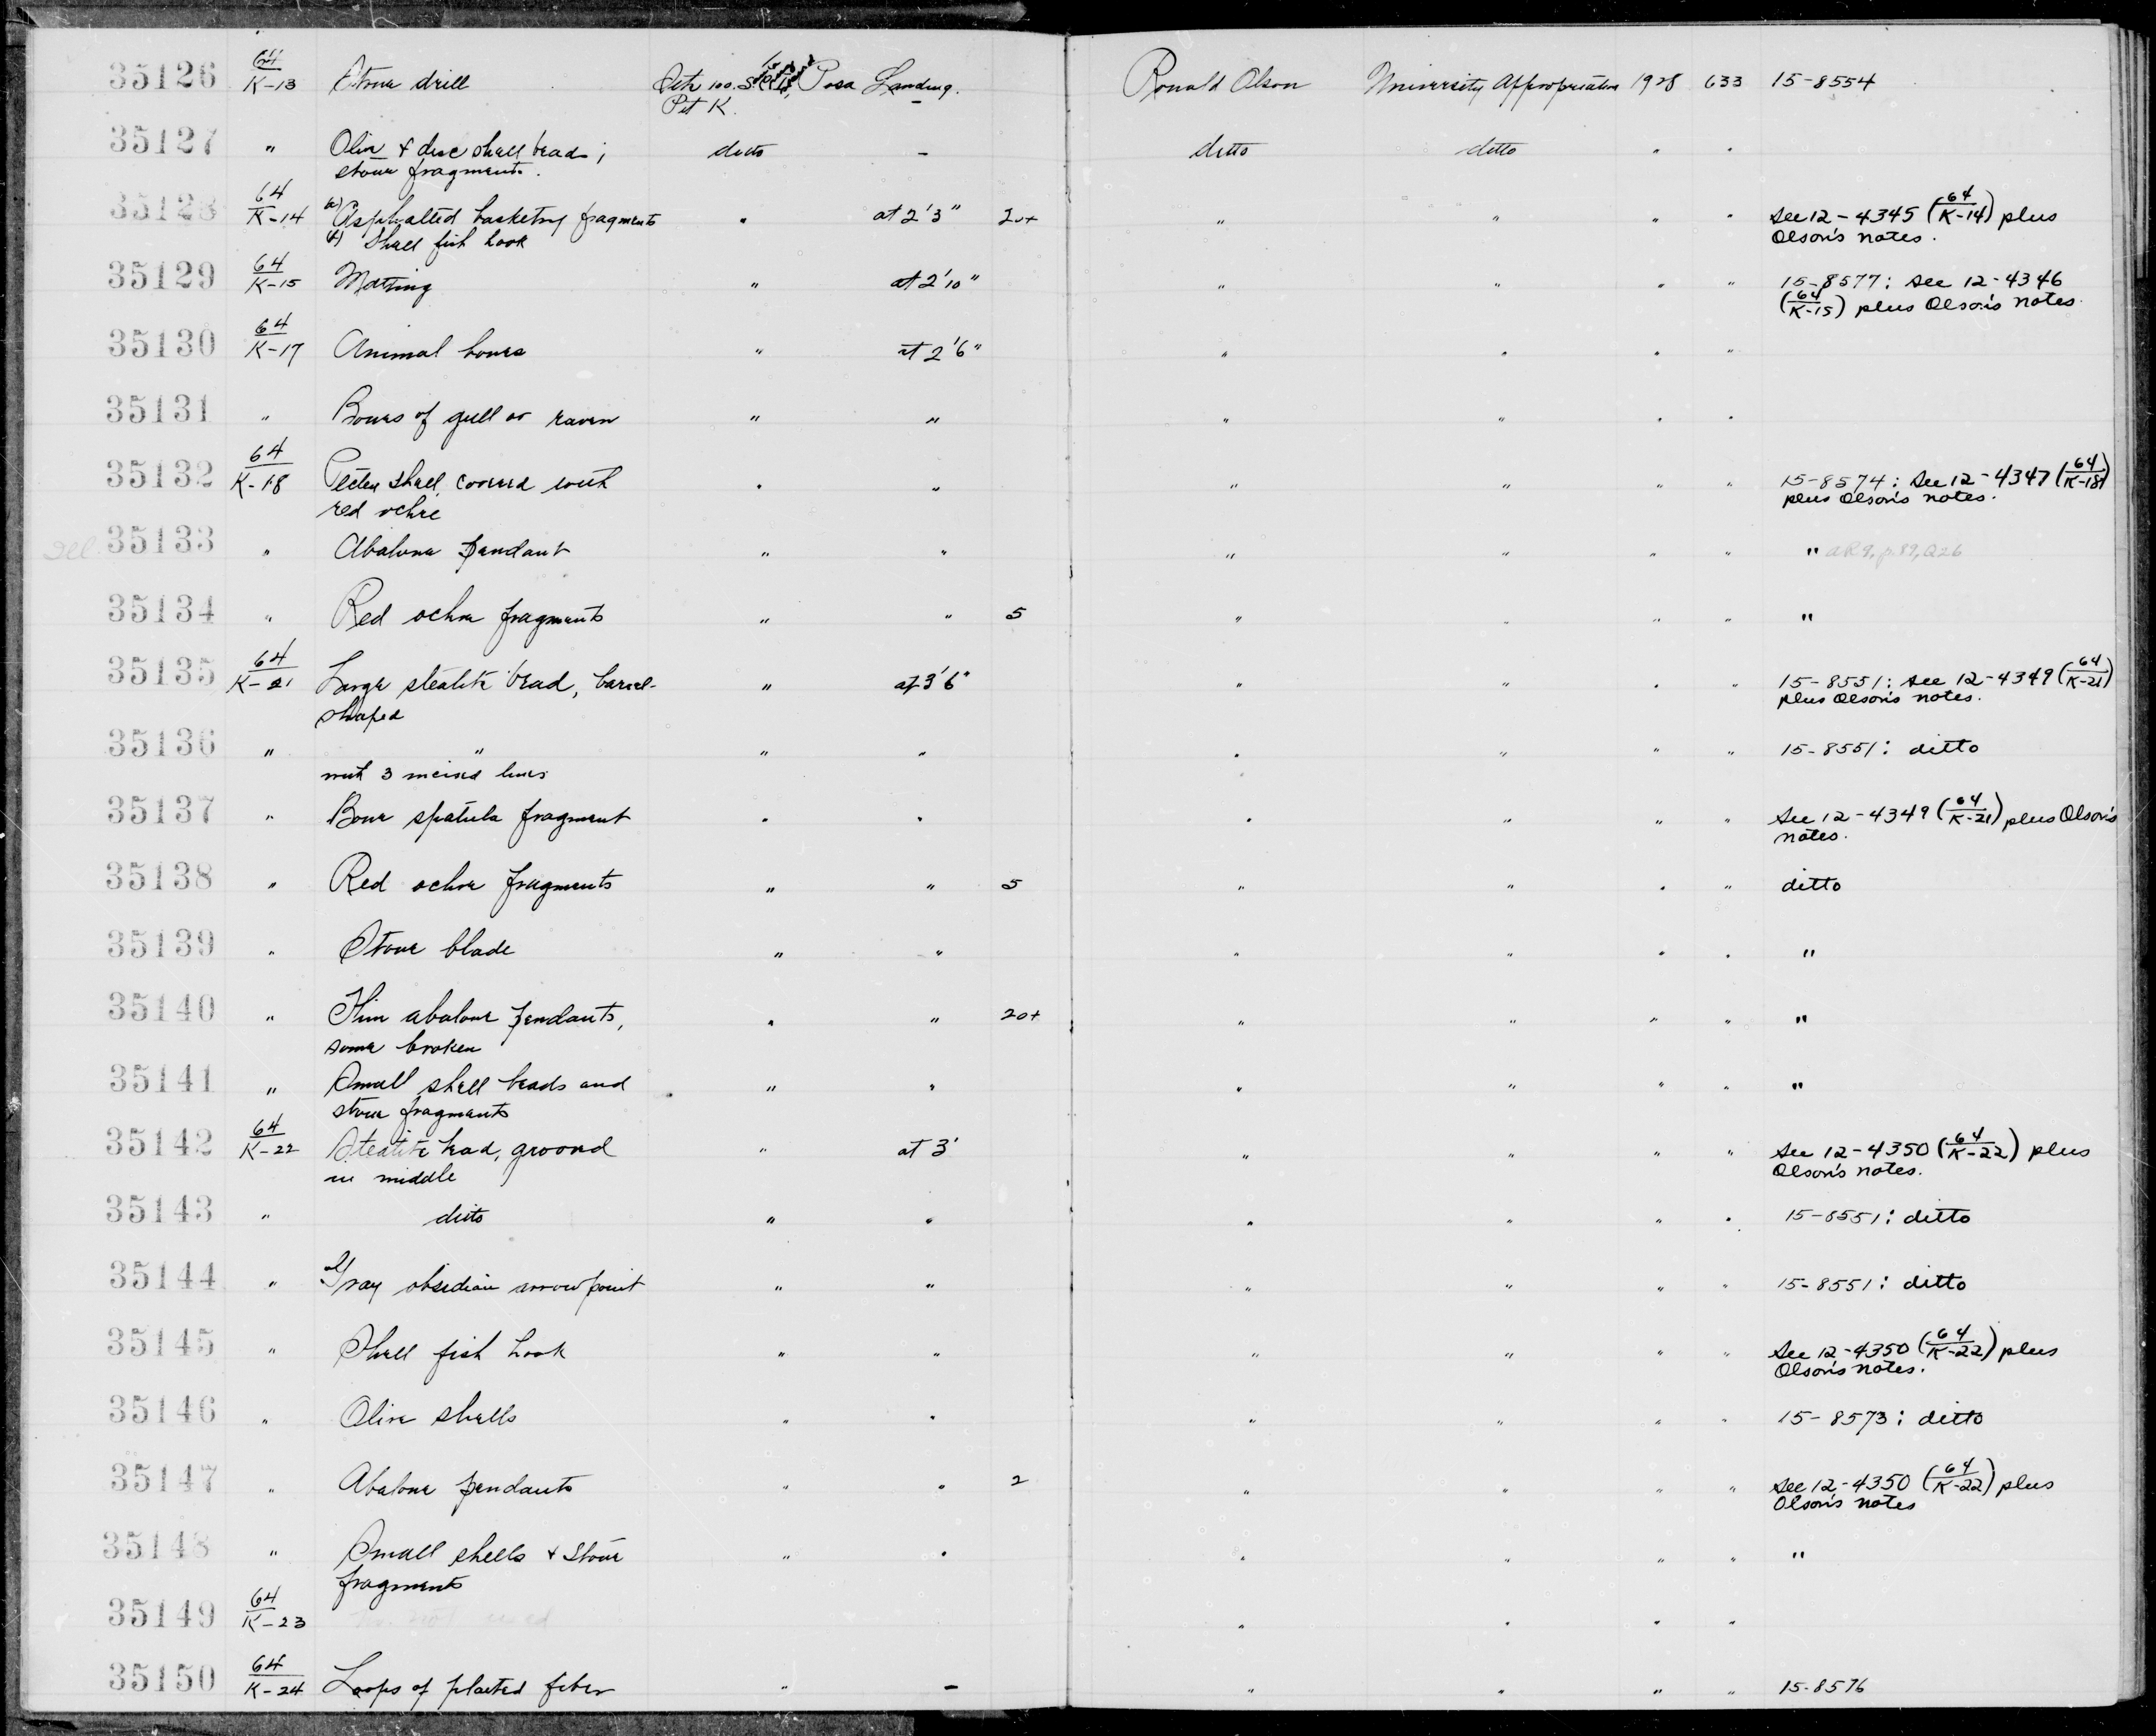 35126 64/K-13 Stone drill Site 100. Posa Landing. – Ronald Olson University Appropriation 1928 633 15-8554
Pit K.
35127 " Oliv. & disc shell beads; ditto – ditto ditto " "
stone fragments.
35128 64/K-14 a) Asphalted basketry fragments " at 2'3" 20+ " " " " See 12-4345 (64/K-14) plus
b) Shell fish hook Olson's notes.
35129 64/K-15 Matting " at 2'10" " " " " 15-8577: See 12-4346
(64/K-15) plus Olson's notes.
35130 64/K-17 Animal bones " at 2'6" " " " "
35131 " Bones of gull or raven " " " " " "
35132 64/K-18 Pecten shell, covered with " " " " " " 15-8574: See 12-4347 (64/K-18)
red ochre plus Olson's notes.
35133 " Abalone pendant " " " " " " " aR9, p.89, Q26
35134 " Red ochre fragments " " 5 " " " " "
35135 64/K-21 Large steatite bead, barrel- " at 3'6" " " " " 15-8551: See 12-4349 (64/K-21)
shaped plus Olson's notes.
35136 " " " " " " " " 15-8551: ditto
with 3 incised lines
35137 " Bone spatula fragment " " " " " " See 12-4349 (64/K-21) plus Olson's
notes.
35138 " Red ochre fragments " " 5 " " " " ditto
35139 " Stone blade " " " " " " "
35140 " Thin abalone pendants, " " 20+ " " " " "
some broken
35141 " Small shell beads and " " " " " " "
stone fragments
35142 64/K-22 Steatite bead, grooved " at 3' " " " " See 12-4350 (64/K-22) plus
in middle Olson's notes.
35143 " ditto " " " " " " 15-8551: ditto
35144 " Gray obsidian arrow point " " " " " " 15-8551: ditto
35145 " Shell fish hook " " " " " " See 12-4350 (64/K-22) plus
Olson's notes.
35146 " Olive shells " " " " " " 15-8573: ditto
35147 " Abalone pendants " " 2 " " " " See 12-4350 (64/K-22) plus
Olson's notes
35148 " Small shells & stone " " " " " " "
fragments
35149 64/K-23 no. not used " " " "
35150 64/K-24 Loops of plaited fiber " – " " " " 15-8576